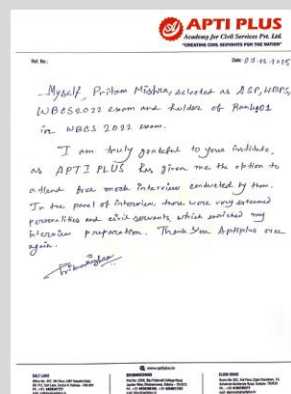 APTI PLUS
Academy for Civil Services Pvt. Ltd.
"CREATING CIVIL SERVANTS FOR THE NATION"
Ref. No.: Date:
Myself, Pritam Mishra, selected as DSP, WBPS,
WBCS 2022 exam and holder of Rank 01
in WBCS 2022 exam.
"I am truly grateful to your institute,
as APTI PLUS has given me the option to
attend free mock interview conducted by them.
In the panel of interview, there were very esteemed
personalities and civil servants, which enriched my
interview preparation. Thank You Aptiplus once
again.
SALT LAKE
www.aptiplus.in
BHUBANESWAR
ELGIN ROAD